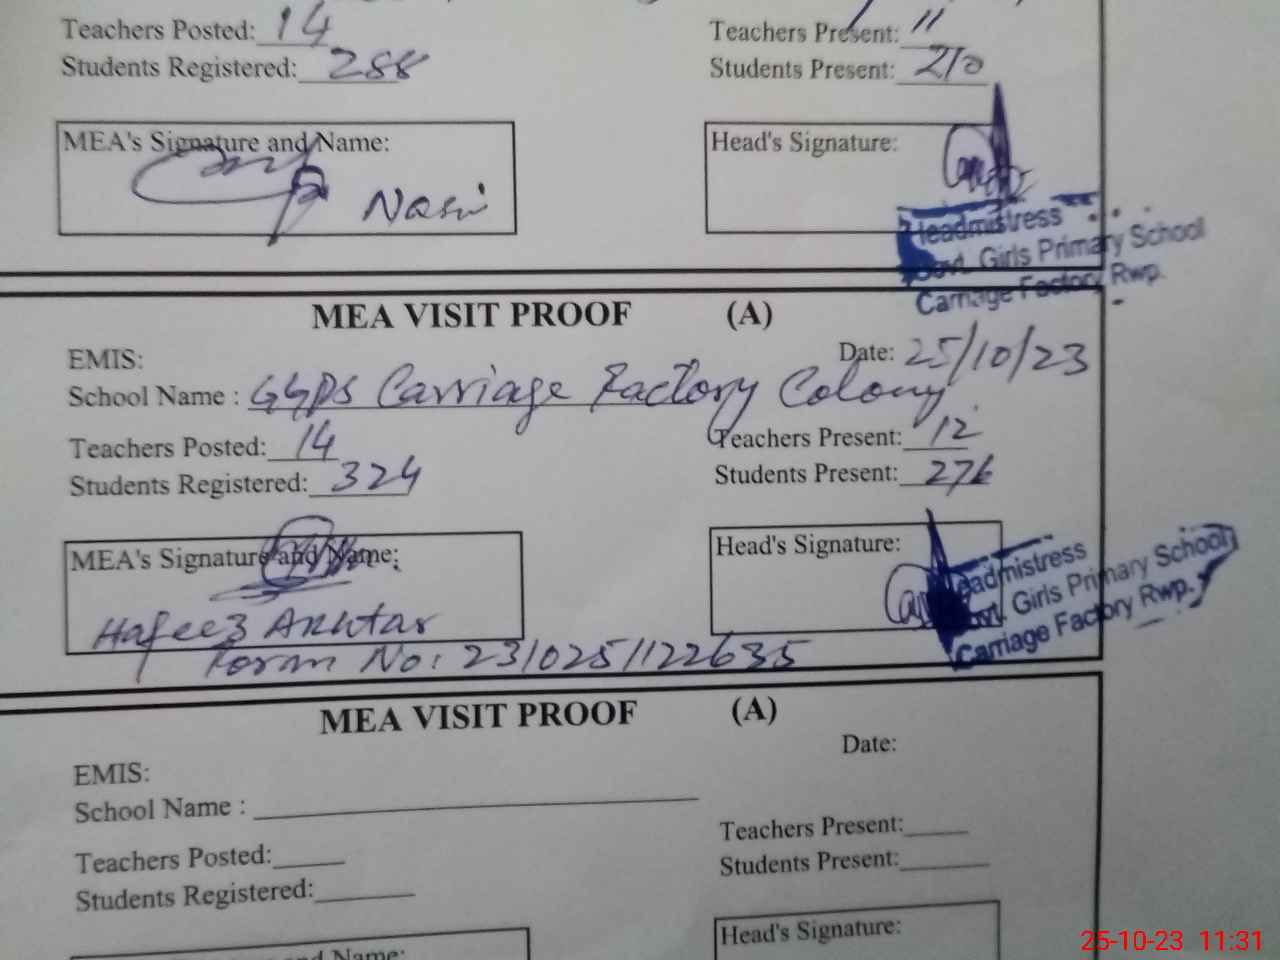 Teachers Posted: 14 Teachers Present: 11
Students Registered: 288 Students Present: 210
MEA's Signature and Name: Head's Signature:
Headmistress
Govt. Girls Primary School
Carriage Factory Rwp.
MEA VISIT PROOF (A)
EMIS: Date: 25/10/23
School Name : GGPS Carriage Factory Colony
Teachers Posted: 14 Teachers Present: 12
Students Registered: 324 Students Present: 276
MEA's Signature and Name: Head's Signature:
Hafeez Akhtar
Headmistress
Govt. Girls Primary School
Carriage Factory Rwp.
Form No: 2310251122635
MEA VISIT PROOF (A)
Date:
EMIS:
School Name :
Teachers Posted: Teachers Present:
Students Registered: Students Present:
Name: Head's Signature:
25-10-23 11:31